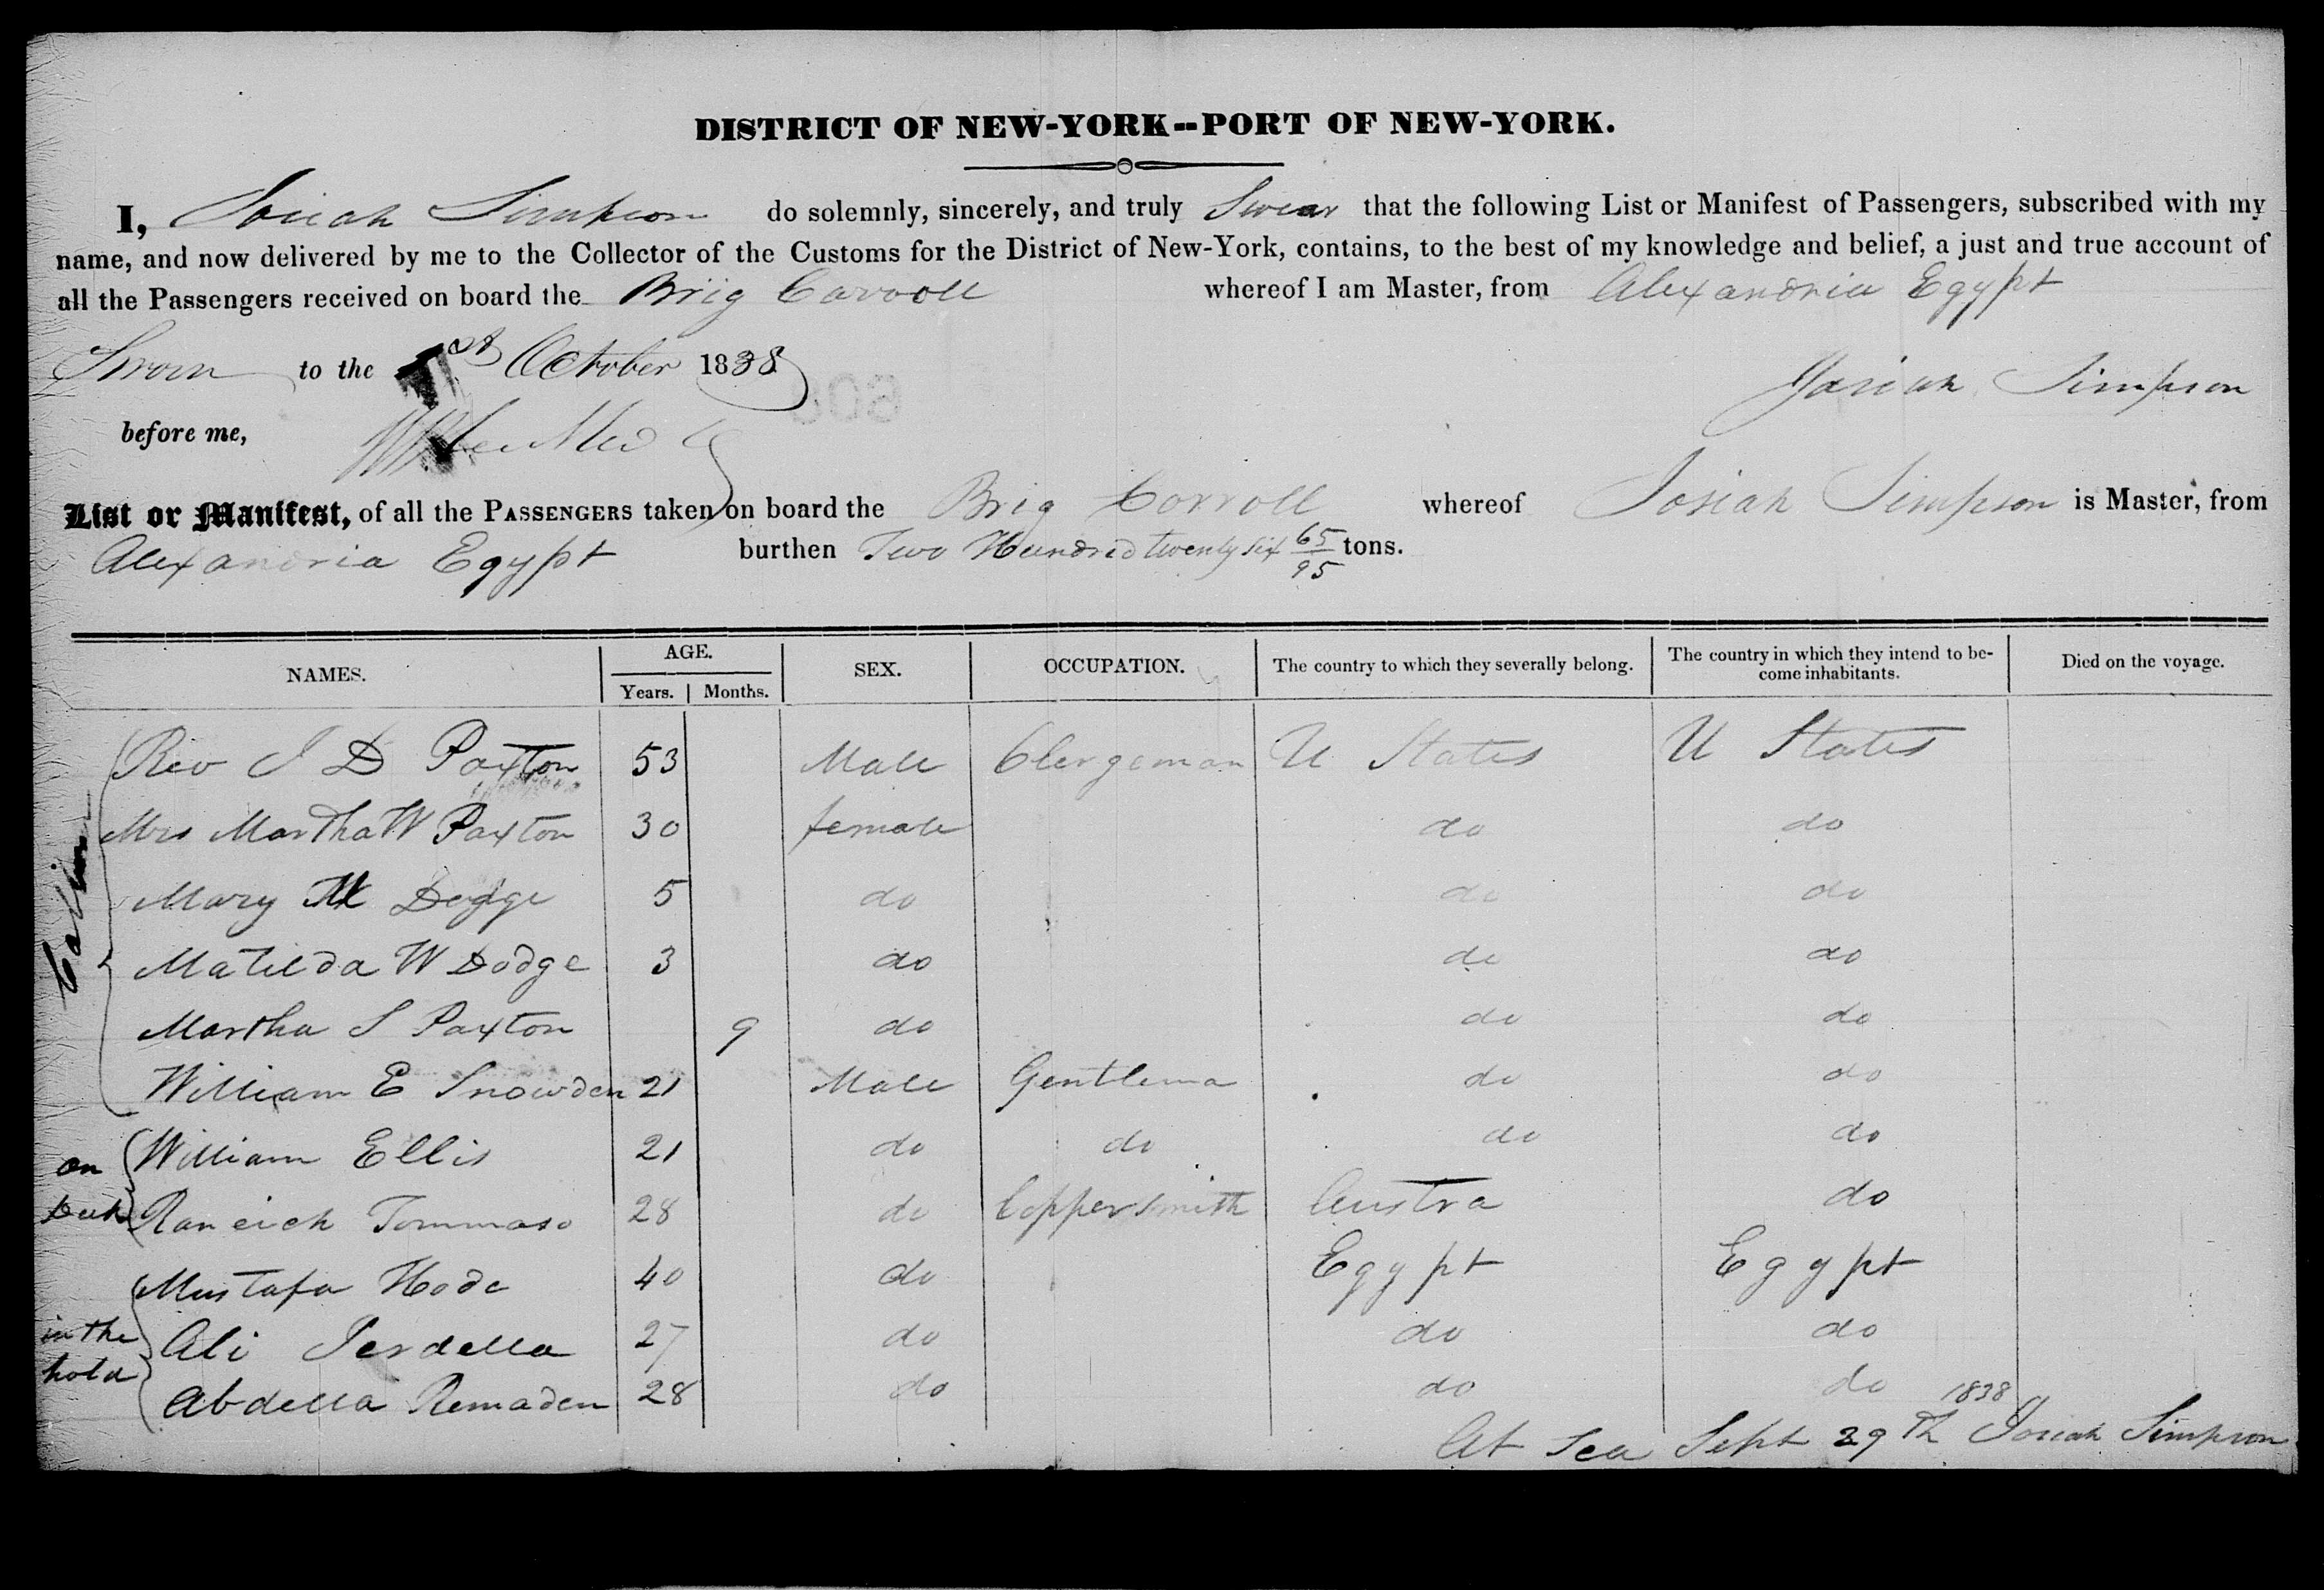 DISTRICT OF NEW-YORK--PORT OF NEW-YORK.
I, Josiah Simpson do solemnly, sincerely, and truly Swear that the following List or Manifest of Passengers, subscribed with my
name, and now delivered by me to the Collector of the Customs for the District of New-York, contains, to the best of my knowledge and belief, a just and true account of
all the Passengers received on board the Brig Carroll whereof I am Master, from Alexandria Egypt
Sworn to the 1st October 1838
Josiah Simpson
before me,
List or Manifest, of all the PASSENGERS taken on board the Brig Corroll whereof Josiah Simpson is Master, from
Alexandria Egypt burthen Two Hundred twenty six 65/95 tons.
NAMES. AGE. Years. Months. SEX. OCCUPATION. The country to which they severally belong. The country in which they intend to be-
come inhabitants. Died on the voyage.
Cabin
Rev J D Paxton 53 Male Clergeman U States U States
Mrs Martha W Paxton 30 female do do
Mary M Dodge 5 do do do
Matilda W Dodge 3 do do do
Martha S Paxton 9 do do do
William E Snowden 21 Male Gentlema do do
on Deck
William Ellis 21 do do do do
Raneich Tommaso 28 do Coppersmith Austra do
in the hold
Mustafa Hode 40 do Egypt Egypt
Ali Jerdella 27 do do do
Abdella Remaden 28 do do do
At Sea Sept 29th 1838 Josiah Simpson